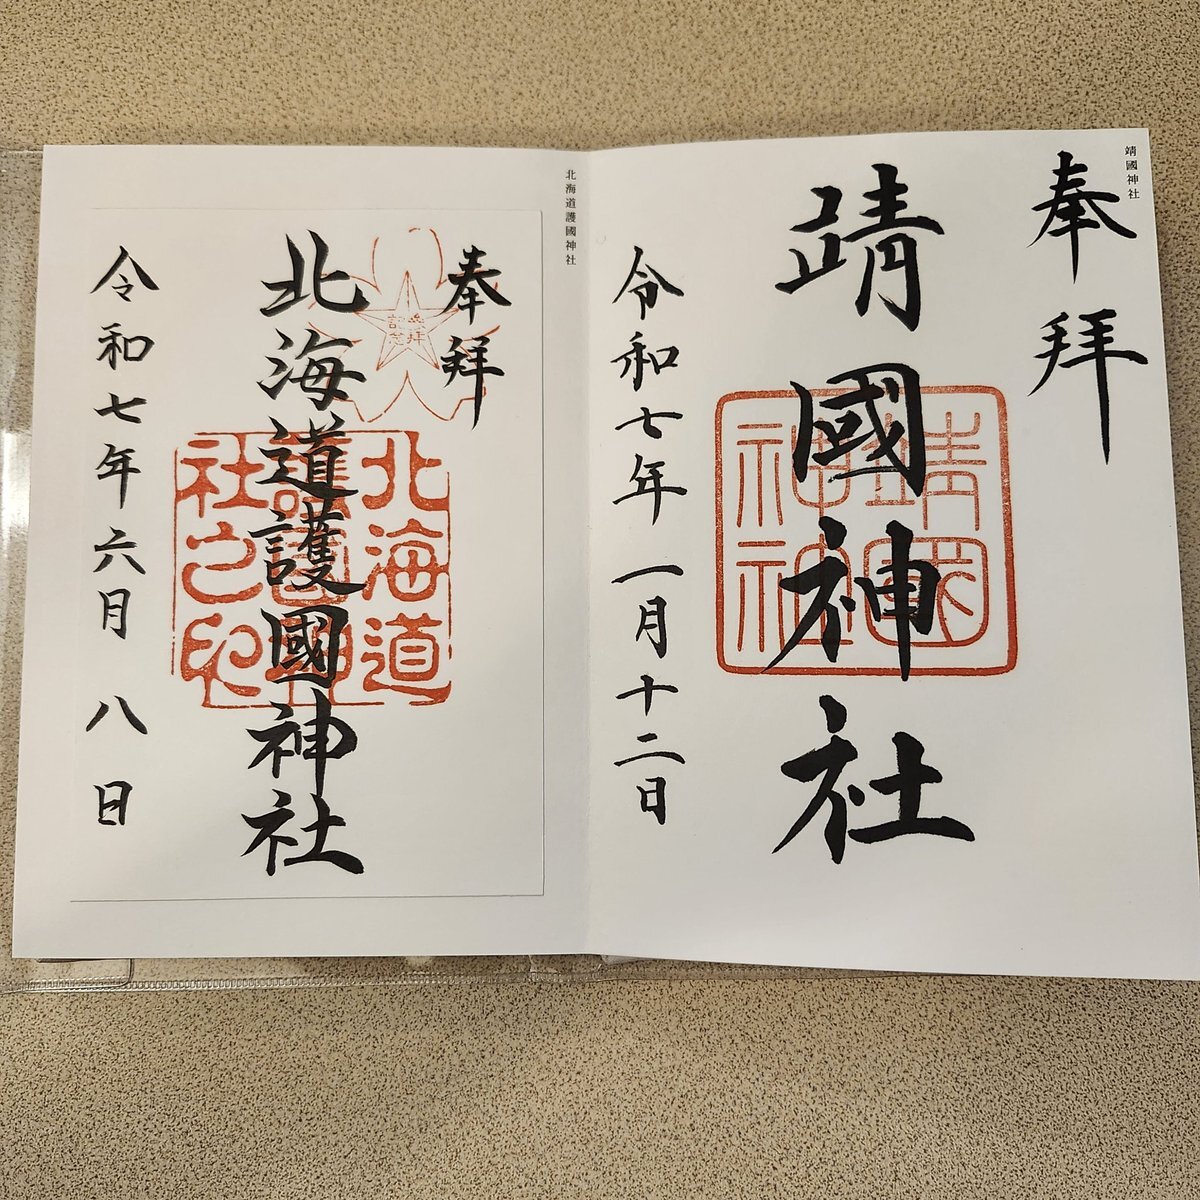 靖國神社
奉拜
靖國神社
靖國神社
令和七年一月十二日
北海道護國神社
奉拜
参拝記念
北海道護國神社
北海道護國神社之印
令和七年六月八日